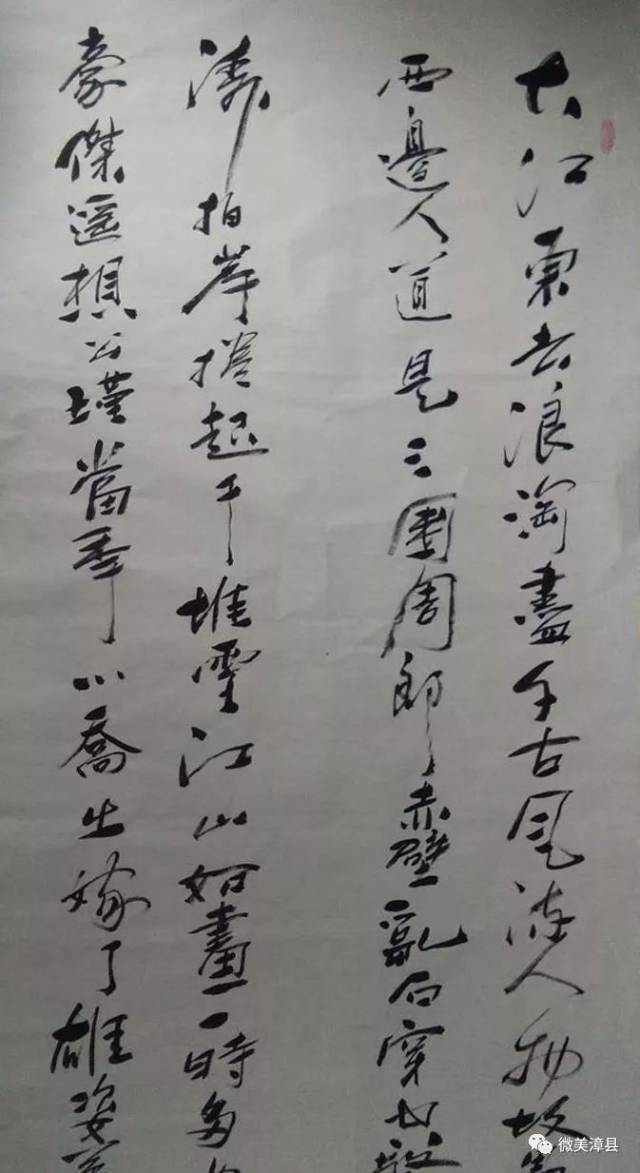 大江東去浪淘盡千古風流人物故
西邊人道是三國周郎赤壁亂石穿
濤拍岸捲起千堆雪江山如畫一時多
豪傑遥想公瑾當年小喬出嫁了雄姿
微美漳县